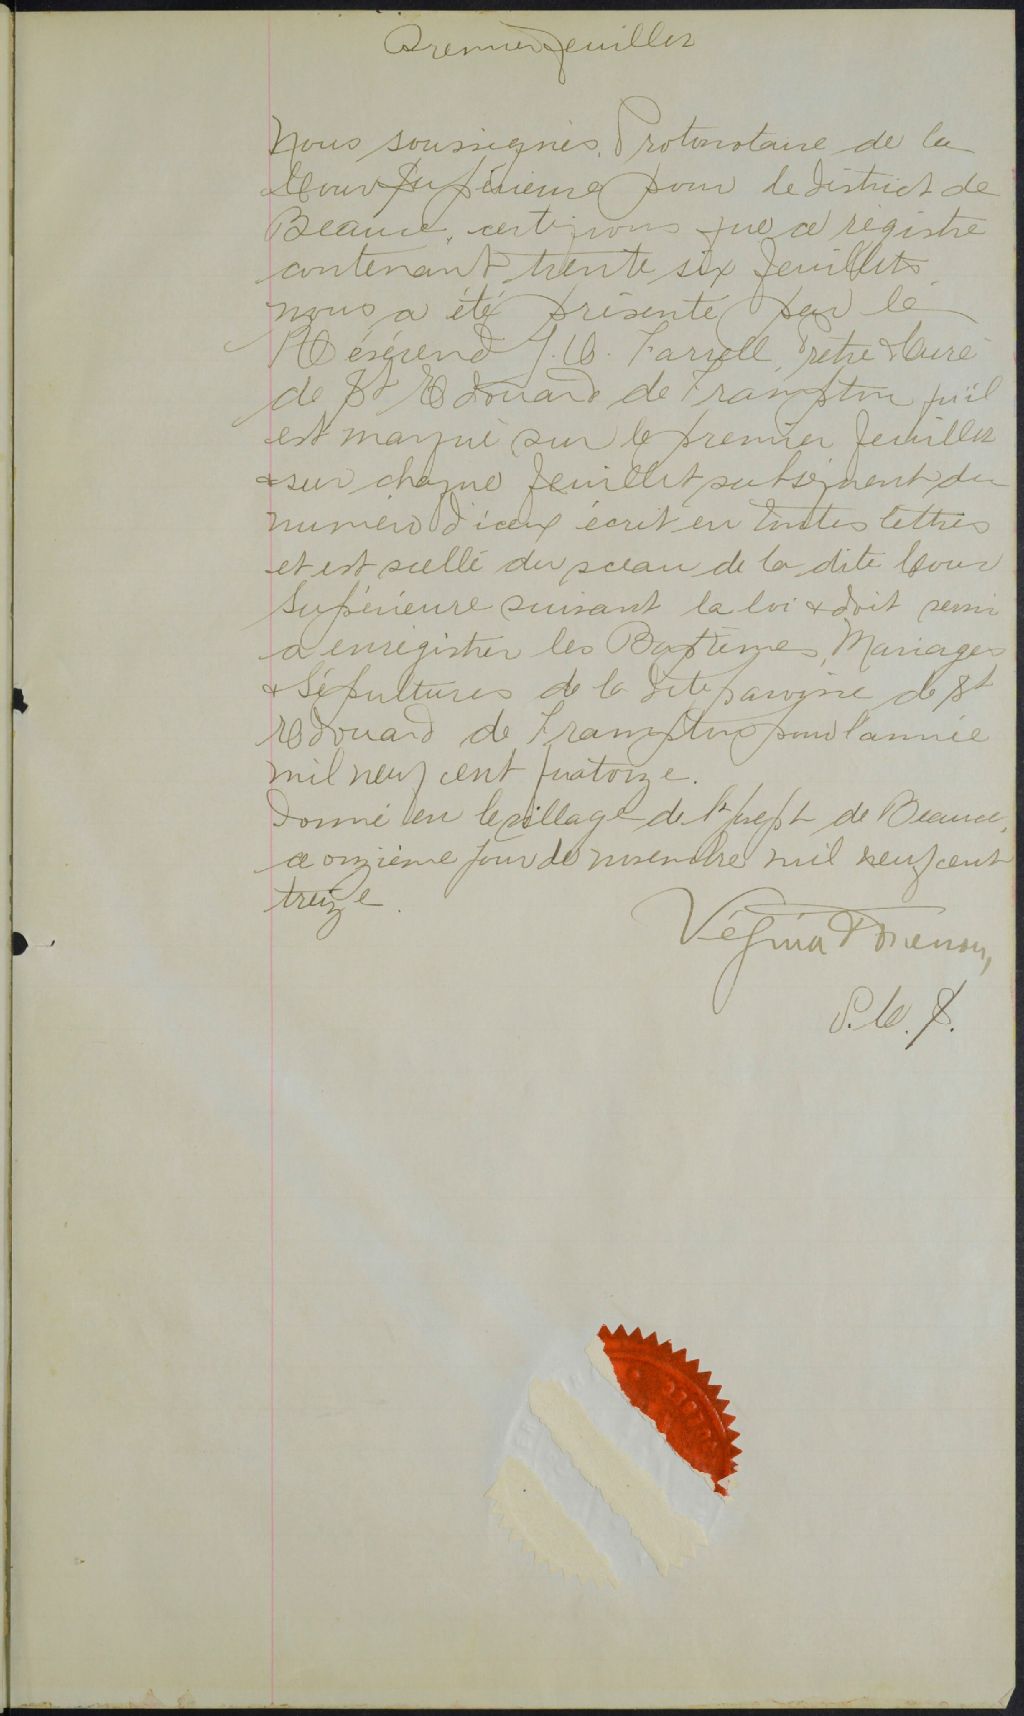 Premier feuillet
Nous soussignés, Protonotaire de la
Cour Supérieure pour le district de
Beauce, certifions que ce régistre
contenant trente six feuillets
nous a été présenté par le
Révérend J. C. Farrell, Prêtre & Curé
de St Edouard de Frampton qu'il
est marqué sur le premier feuillet
& sur chaque feuillet subséquent du
numéro d'iceux écrit en toutes lettres
et est scellé du sceau de la dite Cour
Supérieure suivant la loi & doit servir
a enregistrer les Baptêmes, Mariages
& Sépultures de la dite paroisse de St
Edouard de Frampton pour l'année
mil neuf cent quatorze.
Donné en le village de St Joseph de Beauce,
ce onzième jour de novembre mil neuf cent
treize.
Vézina &
P. C. S.